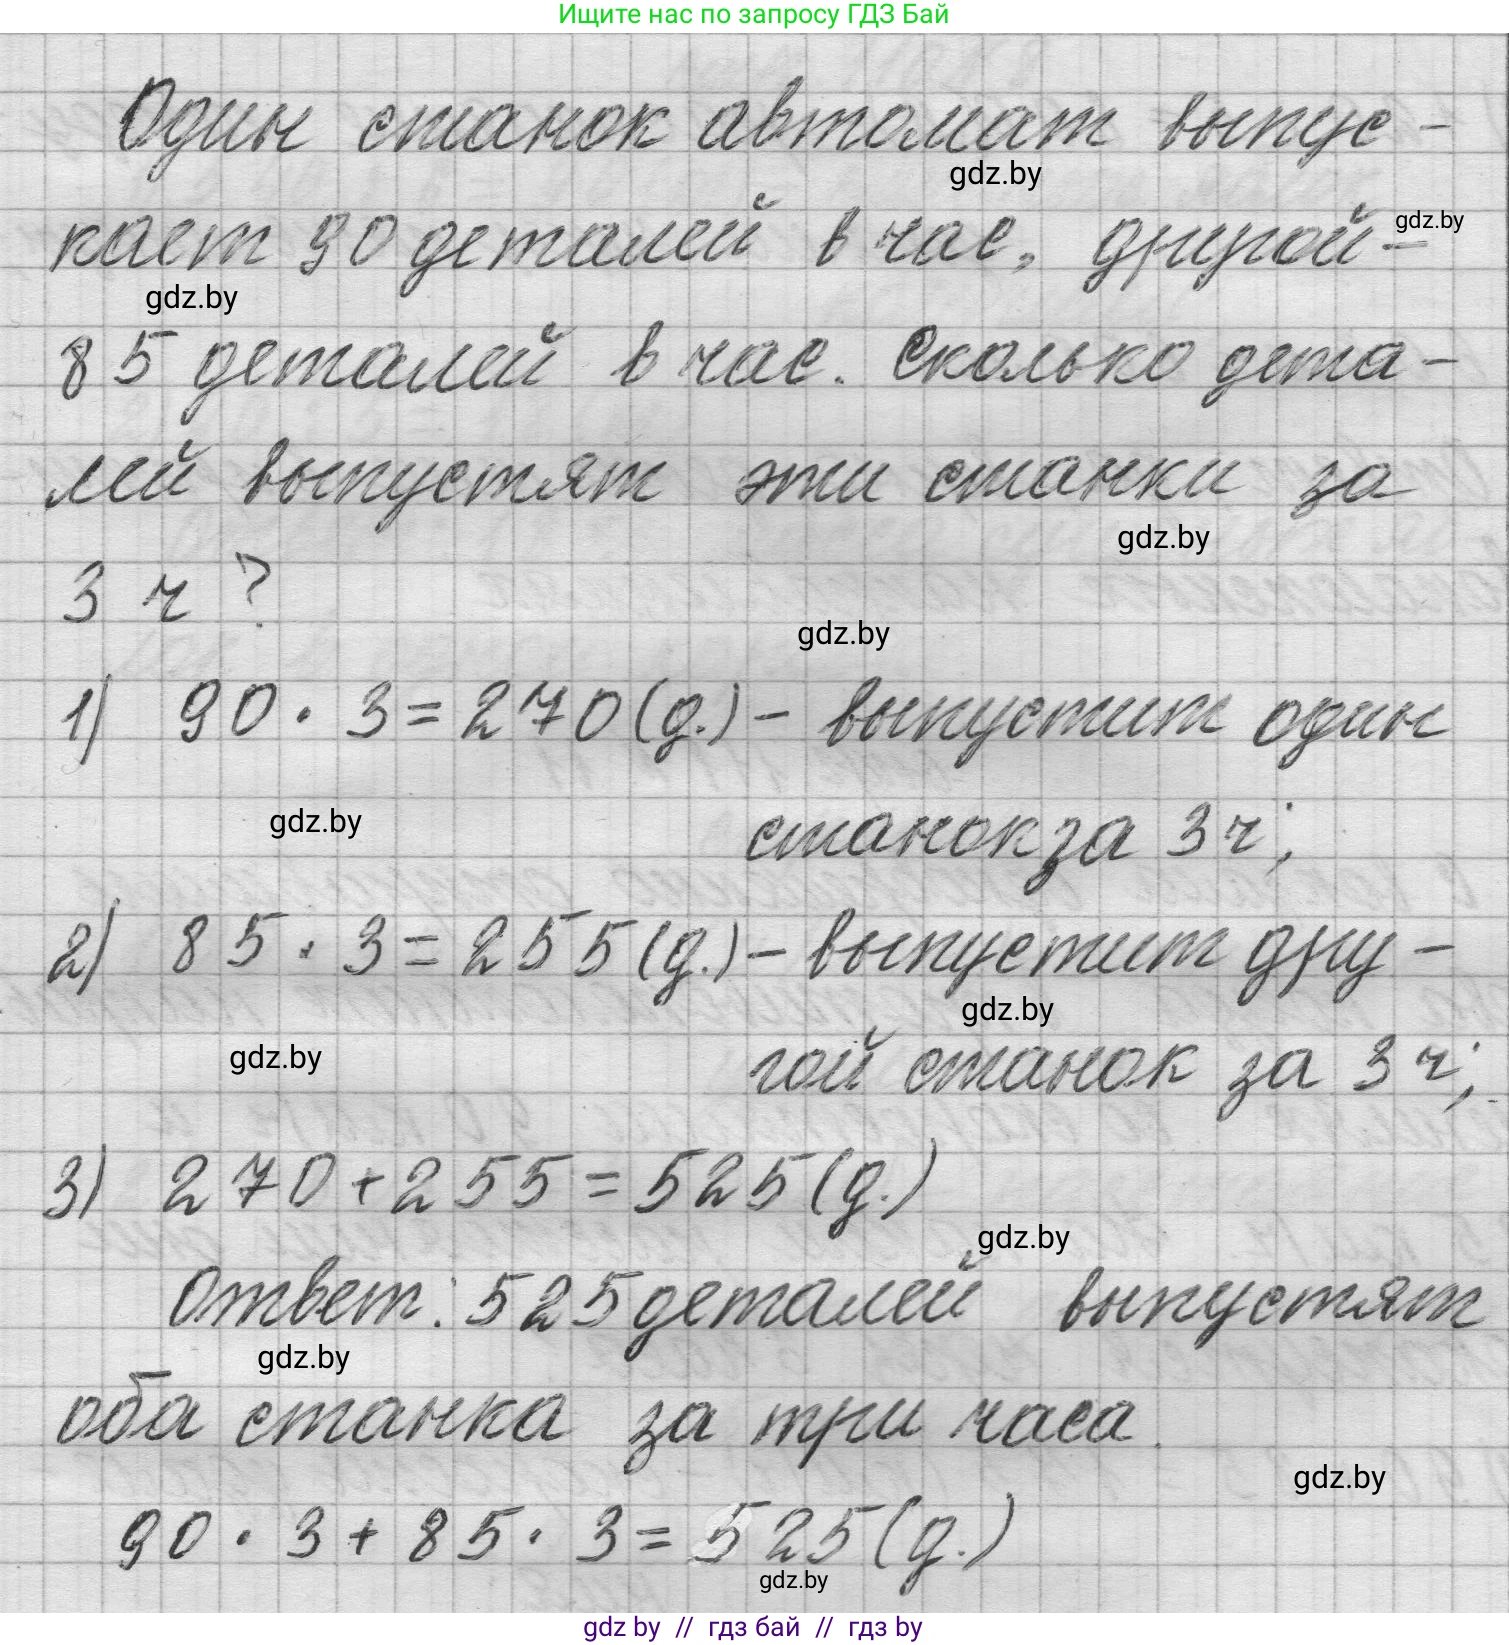 Ищите нас по запросу ГДЗ Бай
Один станок автомат выпус-
gdz.by
кает 90 деталей в час, другой-
gdz.by
gdz.by
85 деталей в час. Сколько дета-
лей выпустят эти станки за
gdz.by
3 ч ?
gdz.by
1) 90 · 3 = 270 (д.) - выпустит один
gdz.by
станок за 3 ч;
2) 85 · 3 = 255 (д.) - выпустит дру-
gdz.by
гой станок за 3 ч;
gdz.by
3) 270 + 255 = 525 (д.)
gdz.by
Ответ: 525 деталей выпустят
gdz.by
оба станка за три часа.
gdz.by
90 · 3 + 85 · 3 = 525 (д.)
gdz.by
gdz by // гдз бай // гдз by